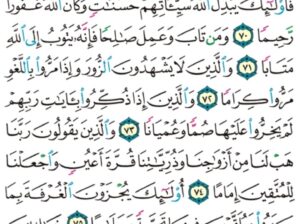 فَأُو۟لَٰٓئِكَ يُبَدِّلُ ٱللَّهُ سَيِّـَٔاتِهِمْ حَسَنَٰتٍ وَكَانَ ٱللَّهُ غَفُورًا
رَّحِيمًا ٧٠ وَمَن تَابَ وَعَمِلَ صَٰلِحًا فَإِنَّهُۥ يَتُوبُ إِلَى ٱللَّهِ
مَتَابًا ٧١ وَٱلَّذِينَ لَا يَشْهَدُونَ ٱلزُّورَ وَإِذَا مَرُّوا۟ بِٱللَّغْوِ
مَرُّوا۟ كِرَامًا ٧٢ وَٱلَّذِينَ إِذَا ذُكِّرُوا۟ بِـَٔايَٰتِ رَبِّهِمْ
لَمْ يَخِرُّوا۟ عَلَيْهَا صُمًّا وَعُمْيَانًا ٧٣ وَٱلَّذِينَ يَقُولُونَ رَبَّنَا
هَبْ لَنَا مِنْ أَزْوَٰجِنَا وَذُرِّيَّٰتِنَا قُرَّةَ أَعْيُنٍ وَٱجْعَلْنَا
لِلْمُتَّقِينَ إِمَامًا ٧٤ أُو۟لَٰٓئِكَ يُجْزَوْنَ ٱلْغُرْفَةَ بِمَا